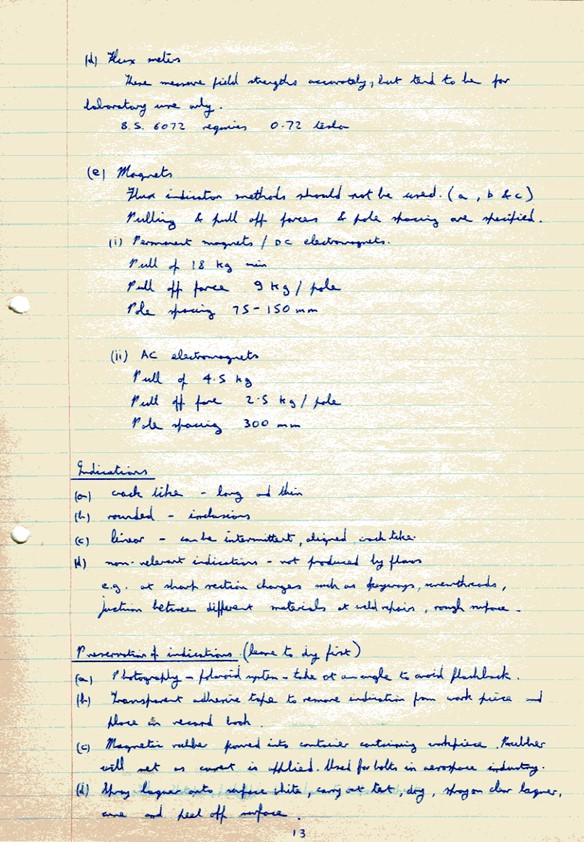 (d) Flux meters
These measure field strengths accurately, but tend to be for
laboratory use only.
B.S. 6072 requires 0.72 tesla
(e) Magnets
Flux indicator methods should not be used. (a, b & c)
Pulling & pull off forces & pole spacing are specified.
(i) Permanent magnets / DC electromagnets.
Pull of 18 kg min
Pull off force 9 kg / pole
Pole spacing 75-150 mm
(ii) AC electromagnets
Pull of 4.5 kg
Pull off force 2.5 kg / pole
Pole spacing 300 mm
Indications
(a) crack like - long and thin
(b) rounded - inclusions
(c) linear - can be intermittent, aligned crack like.
(d) non-relevant indications - not produced by flaws
e.g. at sharp section changes such as keyways, screwthreads,
junction between different materials at weld repairs, rough surface.
Preservation of indications (leave to dry first)
(a) Photography - polaroid system - take at an angle to avoid flashback.
(b) Transparent adhesive tape to remove indication from work piece and
place in record book.
(c) Magnetic rubber poured into container containing workpiece. Rubber
will set as current is applied. Used for bolts in aerospace industry.
(d) Spray laquer onto surface white, carry out test, dry, spray on clear laquer,
cure and peel off surface.
13